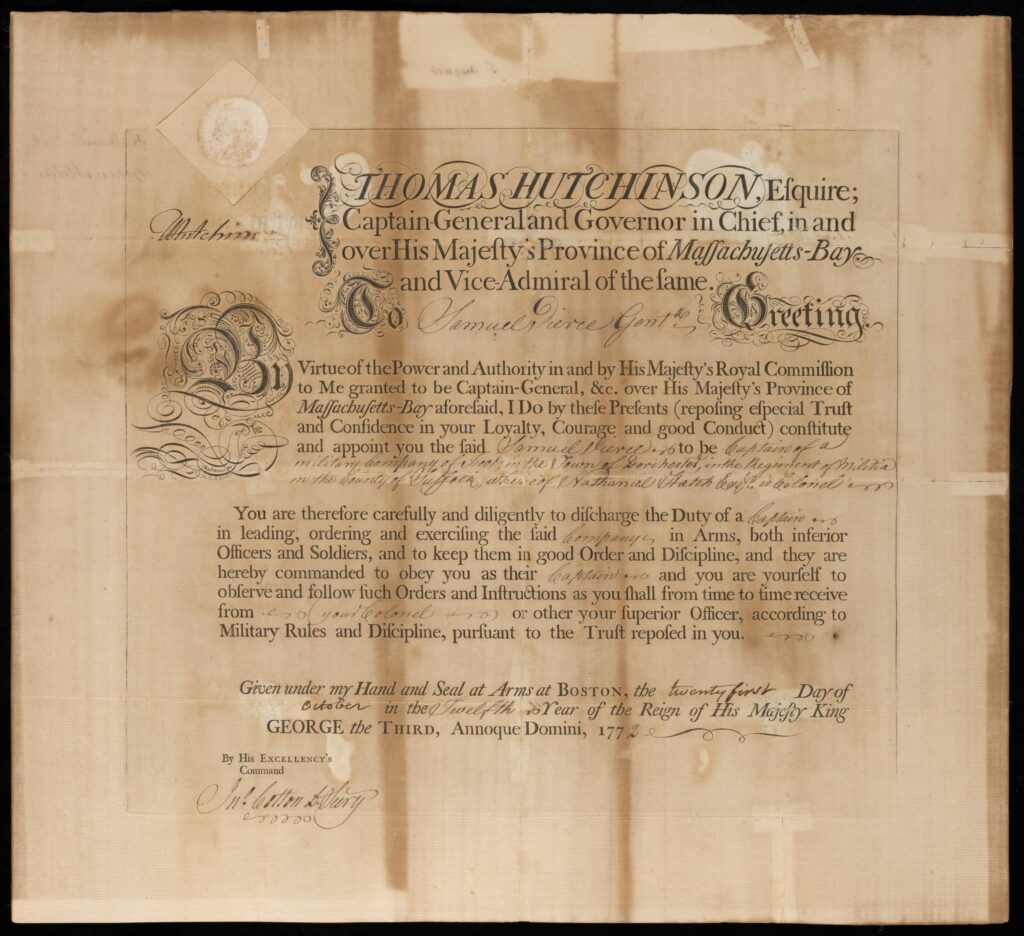 THOMAS HUTCHINSON, Eſquire;
Captain-General and Governor in Chief, in and
over His Majeſty's Province of Maſſachuſetts-Bay
and Vice-Admiral of the ſame.
Hutchin
To Samuel Pierce Gentⁿ Greeting.
By Virtue of the Power and Authority in and by His Majeſty's Royal Commiſſion
to Me granted to be Captain-General, &c. over His Majeſty's Province of
Maſſachuſetts-Bay aforeſaid, I Do by theſe Preſents (repoſing eſpecial Truſt
and Confidence in your Loyalty, Courage and good Conduct) conſtitute
and appoint you the ſaid Samuel Pierce to be Captain of a
military Company of Foot, in the Town of Dorchester, in the Regiment of Militia
in the County of Suffolk, whereof Nathanial Hatch Esqr. is Colonel
You are therefore carefully and diligently to diſcharge the Duty of a Captain
in leading, ordering and exerciſing the ſaid Company in Arms, both inferior
Officers and Soldiers, and to keep them in good Order and Diſcipline, and they are
hereby commanded to obey you as their Captain and you are yourſelf to
obſerve and follow ſuch Orders and Inſtructions as you ſhall from time to time receive
from (your Colonel) or other your ſuperior Officer, according to
Military Rules and Diſcipline, purſuant to the Truſt repoſed in you.
Given under my Hand and Seal at Arms at BOSTON, the twenty first Day of
October in the Twelfth Year of the Reign of His Majeſty King
GEORGE the THIRD, Annoque Domini, 1772
By His EXCELLENCY'S
Command
Jnº Cotton D. Secry